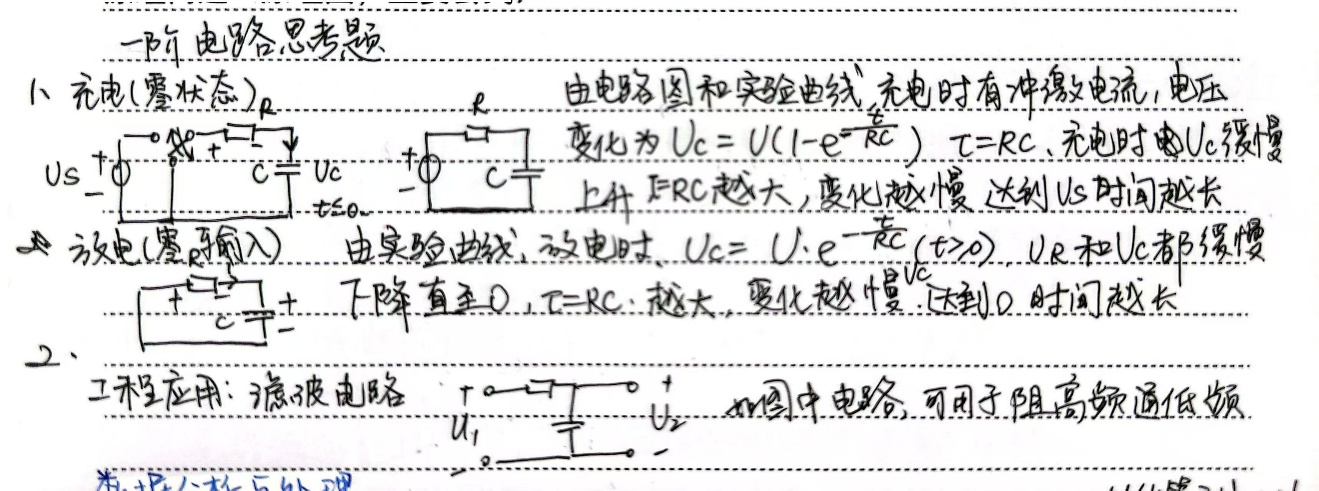 一阶电路思考题
1、充电(零状态) 由电路图和实验曲线,充电时有冲激电流,电压
R R 变化为 Uc = U(1-e^{-t/RC}) τ=RC、充电时 Uc缓慢
US + - + - C Uc t≤0_ + - C 上升 τ=RC越大,变化越慢 达到US时间越长
放电(零输入) 由实验曲线,放电时、Uc = U·e^{-t/RC} (t>0)、UR和Uc都缓慢
R + - C + - 下降直至0,τ=RC.越大,变化越慢.Uc达到0时间越长
2、
工程应用:滤波电路 + U1 - + U2 - 如图中电路,可用于阻高频通低频